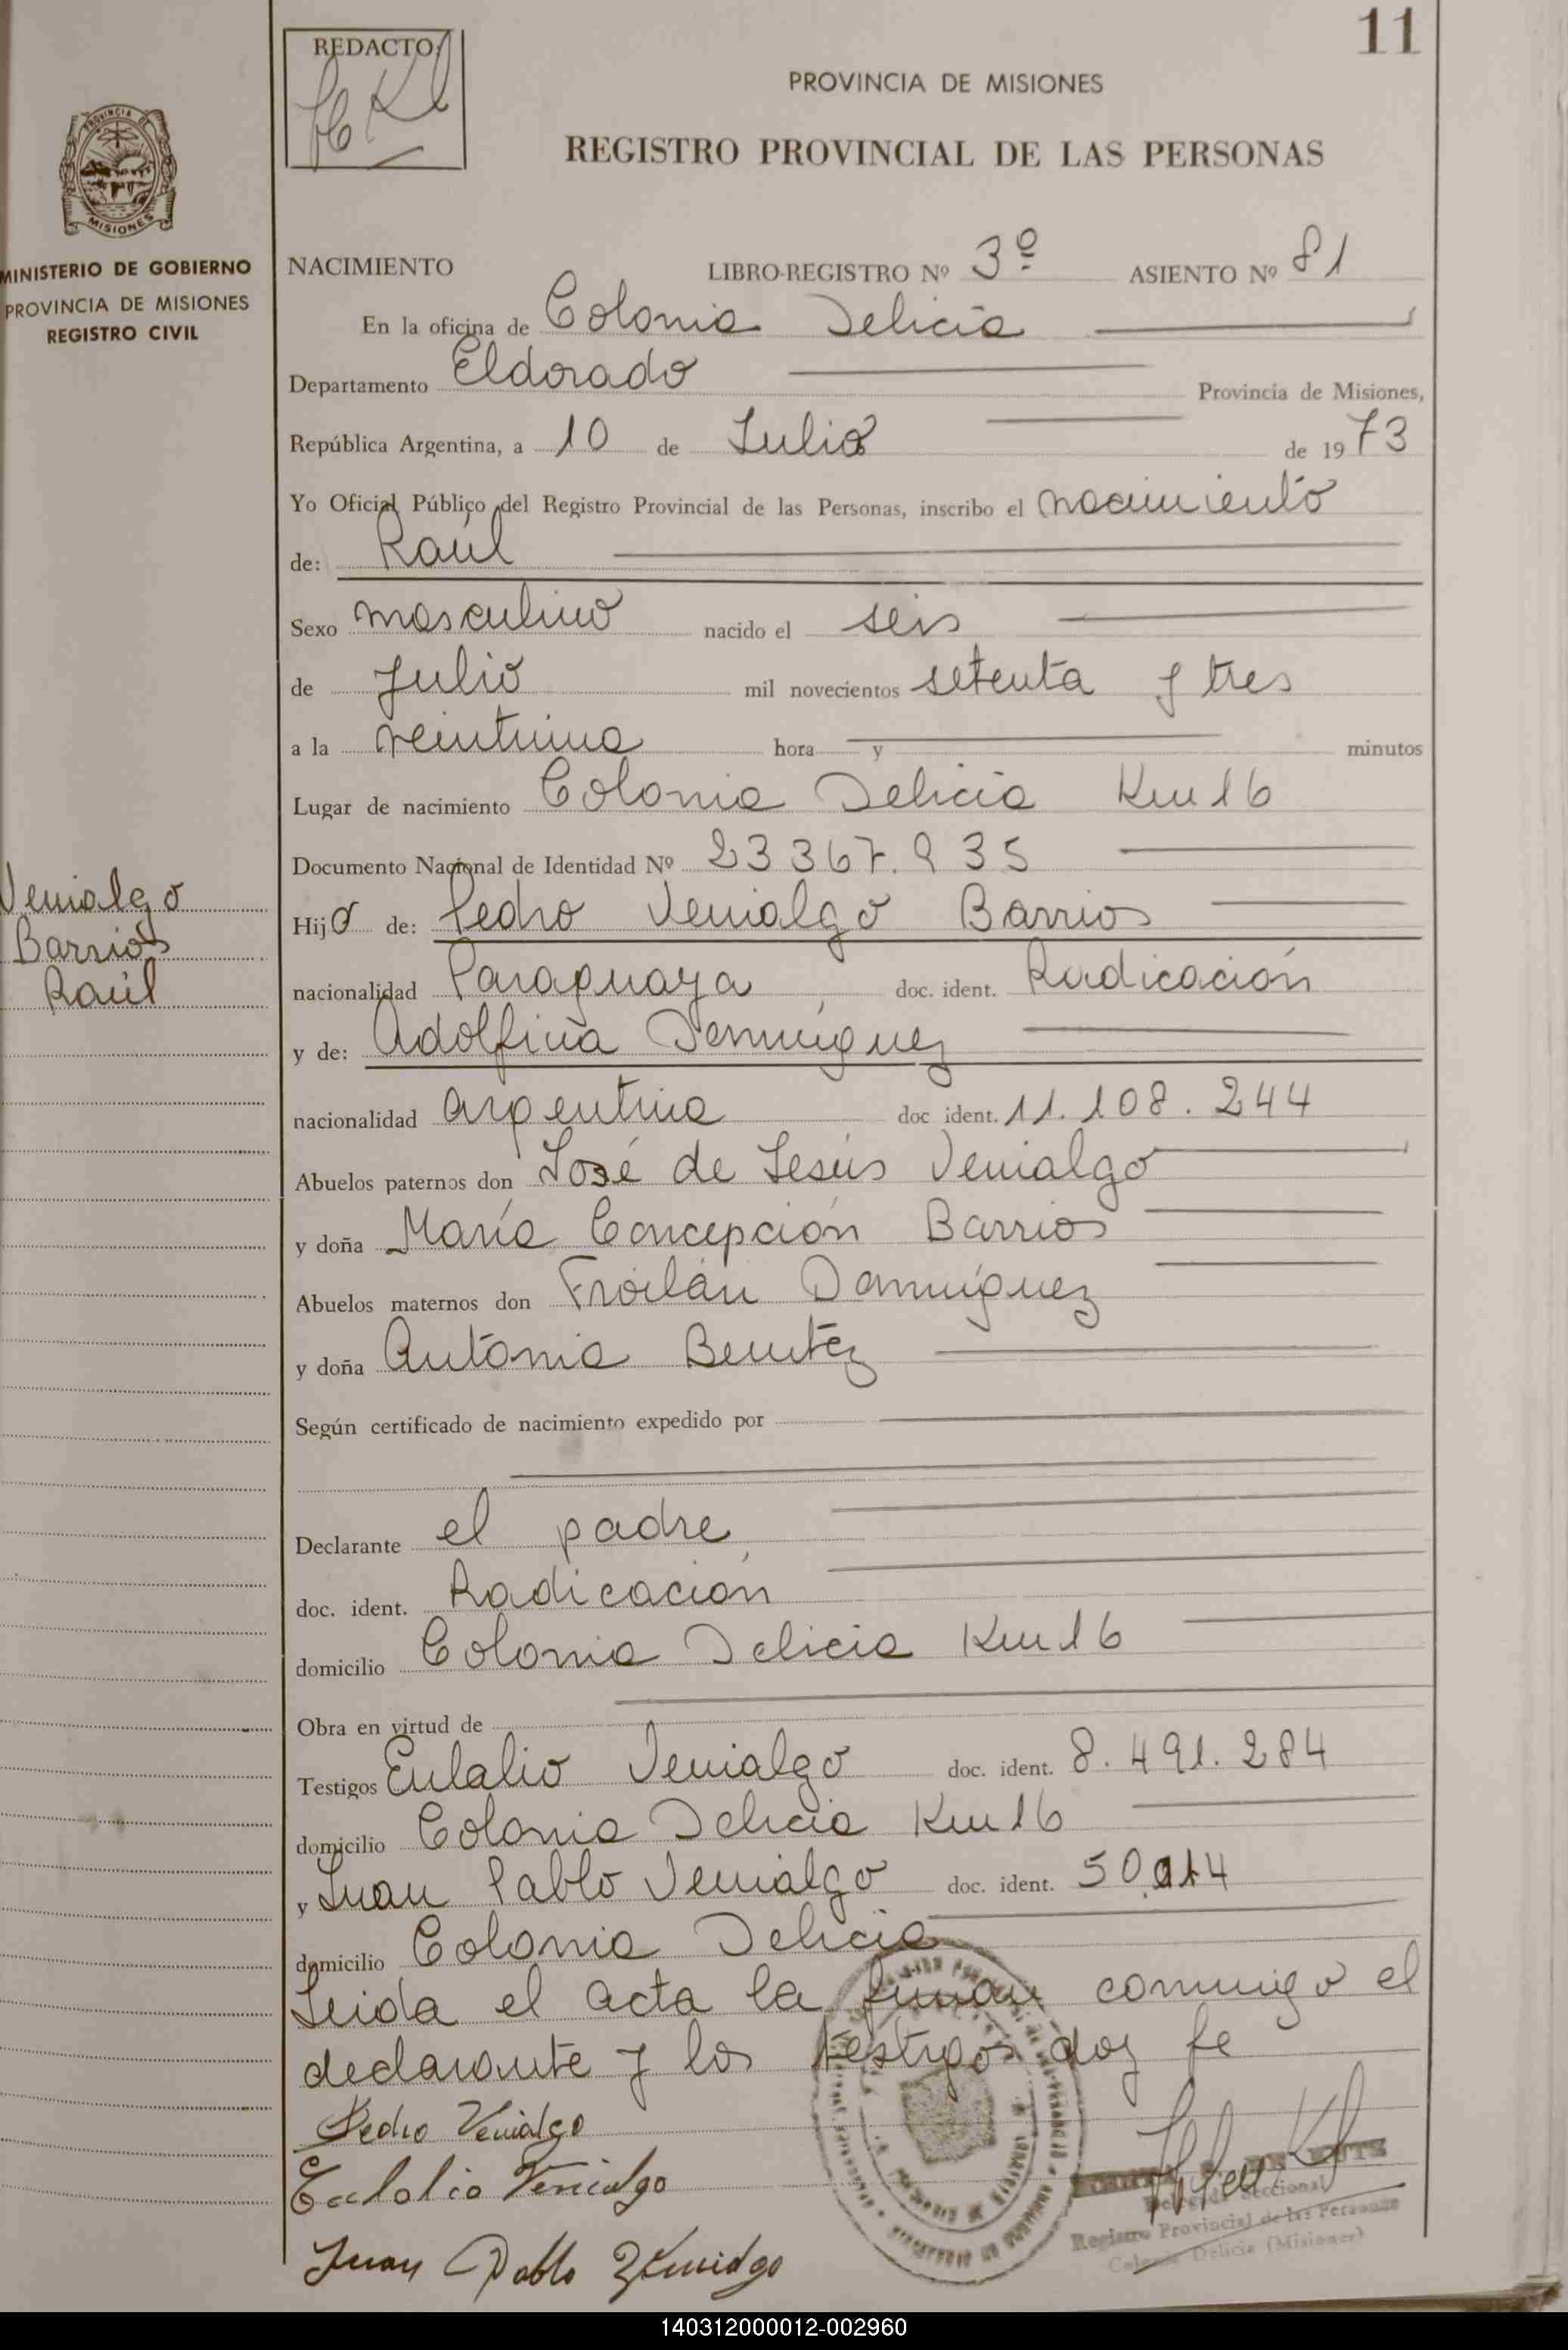 11
REDACTO:
PROVINCIA DE MISIONES
REGISTRO PROVINCIAL DE LAS PERSONAS
PROVINCIA DE
MISIONES
MINISTERIO DE GOBIERNO
PROVINCIA DE MISIONES
REGISTRO CIVIL
NACIMIENTO LIBRO-REGISTRO Nº 3º ASIENTO Nº 81
En la oficina de Colonia Delicia
Departamento Eldorado Provincia de Misiones,
República Argentina, a 10 de Julio de 1973
Yo Oficial Público del Registro Provincial de las Personas, inscribo el nacimiento
de: Raúl
Sexo masculino nacido el seis
de Julio mil novecientos setenta y tres
a la veintiuna hora y minutos
Lugar de nacimiento Colonia Delicia Km 16
Documento Nacional de Identidad Nº 23367.935
Venialgo
Barrios
Raúl
Hijo de: Pedro Venialgo Barrios
nacionalidad Paraguaya doc. ident. Radicación
y de: Adolfina Domínguez
nacionalidad argentina doc ident. 11.108.244
Abuelos paternos don José de Jesús Venialgo
y doña María Concepción Barrios
Abuelos maternos don Froilán Domínguez
y doña Antonia Benítez
Según certificado de nacimiento expedido por
Declarante el padre
doc. ident. Radicación
domicilio Colonia Delicia Km 16
Obra en virtud de
Testigos Eulalio Venialgo doc. ident. 8.491.284
domicilio Colonia Delicia Km 16
y Juan Pablo Venialgo doc. ident.
domicilio Colonia Delicia
Leida el acta la firman conmigo el
declarante y los testigos doy fe
Pedro Venialgo
Eulalio Venialgo
Juan Pablo Venialgo
Delegada Seccional
Registro Provincial de las Personas
Colonia Delicia (Misiones)
140312000012-002960